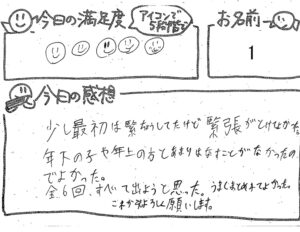 今日の満足度
アイコンで
5段階で
お名前
1
今日の感想
少し最初は緊ちょうしてたけど緊張がとけなかた
年下の子や年上の方とあまりはなすことがなかったの
でよかった。
全6回、すべて出ようと思った。
これからよろしく願いします。